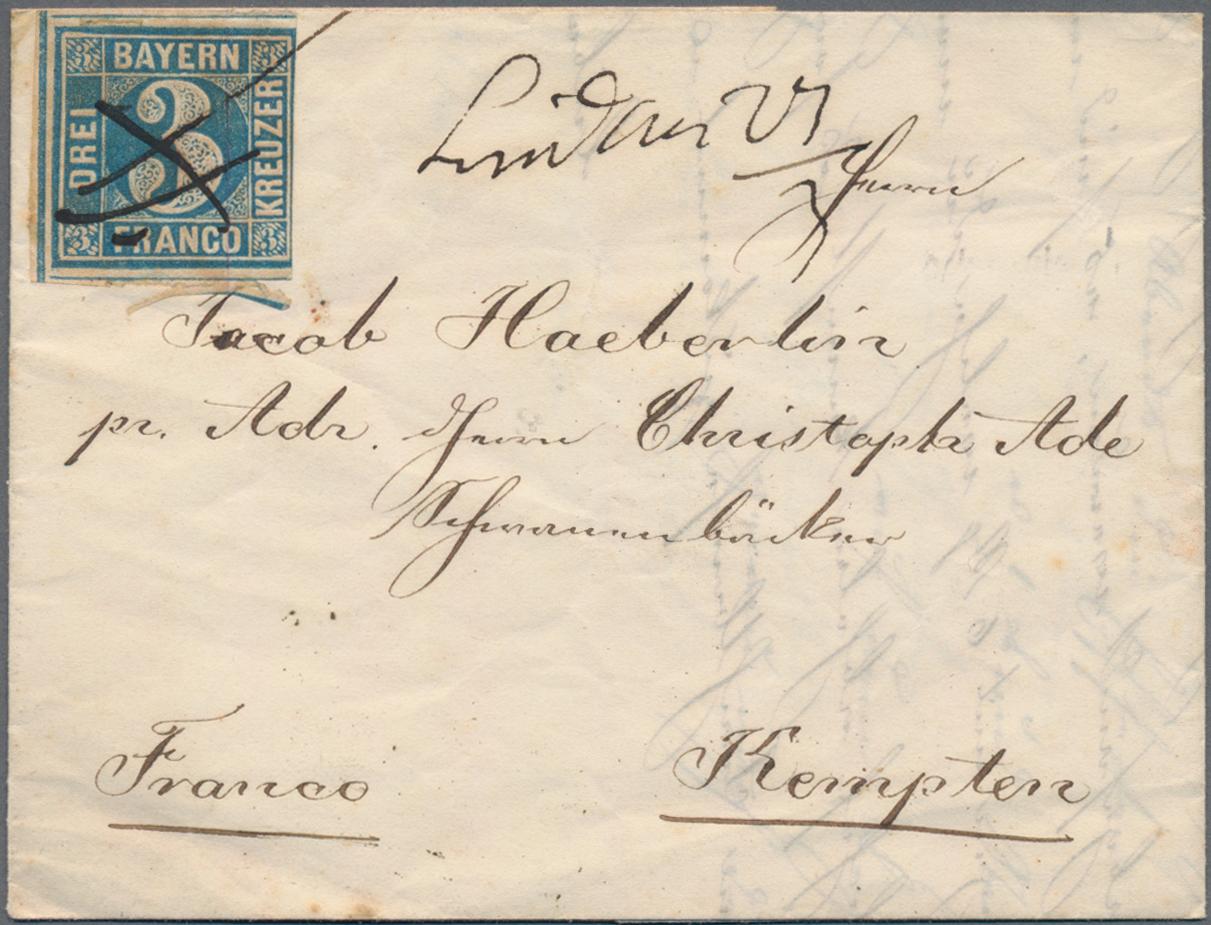 BAYERN
DREI
3
KREUZER
FRANCO
Lindau
Herrn
Jacob Haeberlin
pr. Adr. Herrn Christoph Ade
Schwanenbäcker
Franco
Kempten